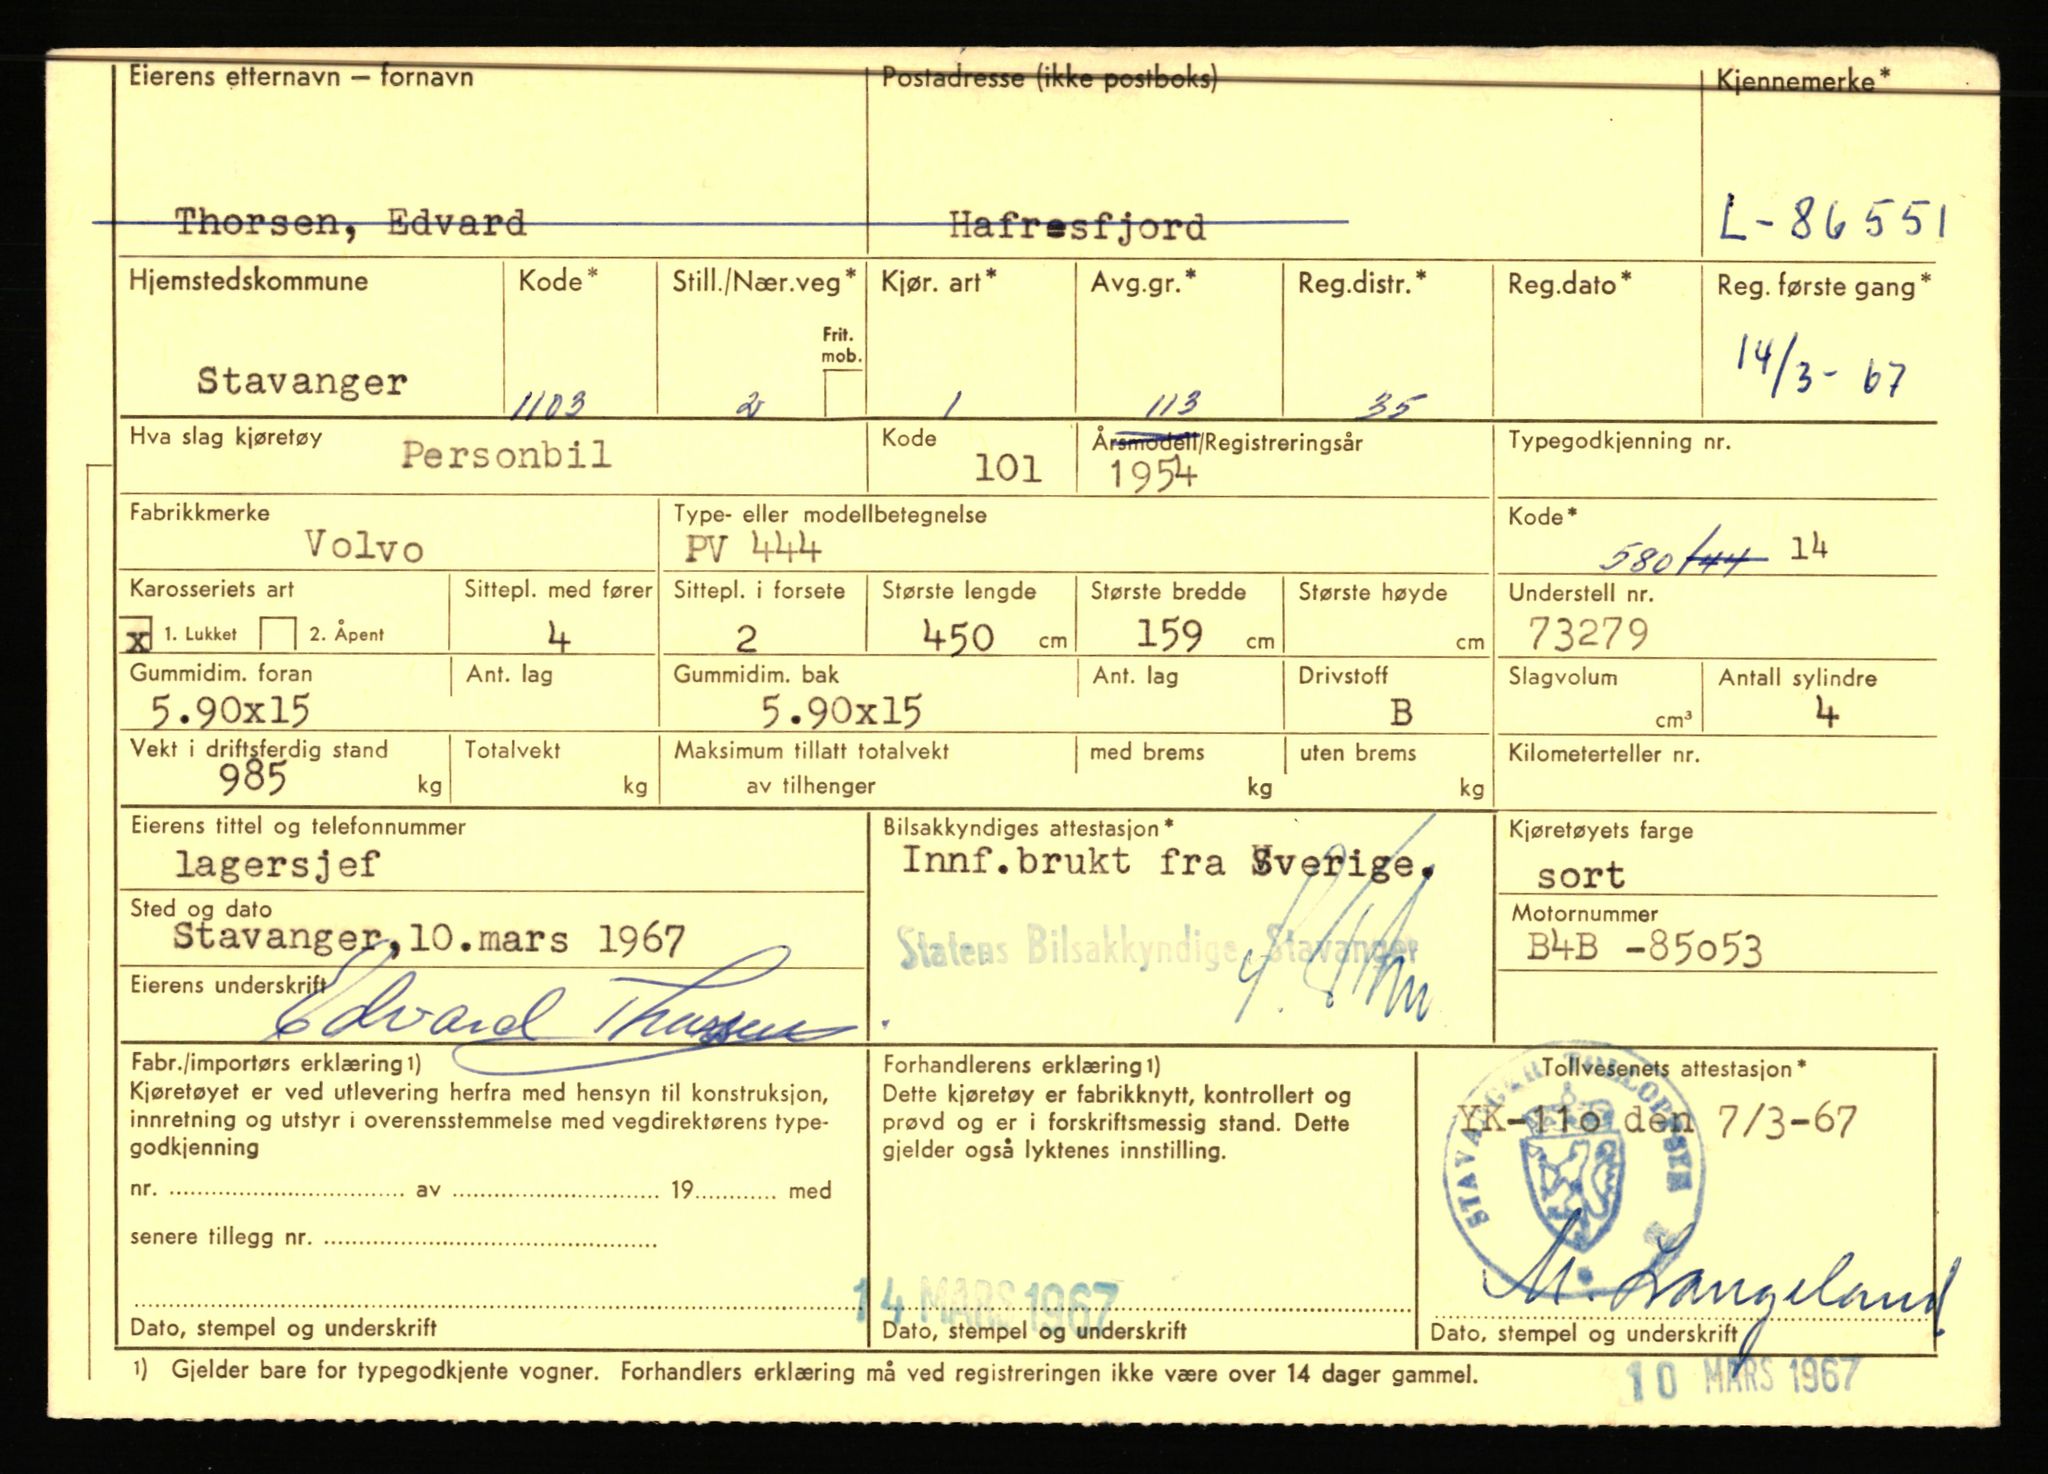 Eierens etternavn — fornavn Postadresse (ikke postboks) Kjennemerke*
Thorsen, Edvard Hafrsfjord L-86551
Hjemstedskommune Kode* Still./Nær.veg* Kjør. art* Avg.gr.* Reg.distr.* Reg.dato* Reg. første gang*
Frit.
mob.
Stavanger 1103 2 1 113 35 14/3-67
Hva slag kjøretøy Kode Årsmodell/Registreringsår Typegodkjenning nr.
Personbil 101 1954
Fabrikkmerke Type- eller modellbetegnelse Kode*
Volvo PV 444 580/44 14
Karosseriets art Sittepl. med fører Sittepl. i forsete Største lengde Største bredde Største høyde Understell nr.
x 1. Lukket 2. Åpent 4 2 450 cm 159 cm cm 73279
Gummidim. foran Ant. lag Gummidim. bak Ant. lag Drivstoff Slagvolum Antall sylindre
5.90x15 5.90x15 B cm³ 4
Vekt i driftsferdig stand Totalvekt Maksimum tillatt totalvekt med brems uten brems Kilometerteller nr.
985 kg kg av tilhenger kg kg
Eierens tittel og telefonnummer Bilsakkyndiges attestasjon* Kjøretøyets farge
lagersjef Innf.brukt fra Sverige. sort
Sted og dato Motornummer
Stavanger,10.mars 1967 Statens Bilsakkyndige, Stavanger B4B -85053
Eierens underskrift Edvard Thorsen
Fabr./importørs erklæring 1) Forhandlerens erklæring 1) Tollvesenets attestasjon*
Kjøretøyet er ved utlevering herfra med hensyn til konstruksjon, Dette kjøretøy er fabrikknytt, kontrollert og YK-11o den 7/3-67
innretning og utstyr i overensstemmelse med vegdirektørens type- prøvd og er i forskriftsmessig stand. Dette
godkjenning gjelder også lyktenes innstilling.
nr. av 19 med
senere tillegg nr.
M. Langeland
14 MARS 1967
Dato, stempel og underskrift Dato, stempel og underskrift Dato, stempel og underskrift
1) Gjelder bare for typegodkjente vogner. Forhandlers erklæring må ved registreringen ikke være over 14 dager gammel.
10 MARS 1967